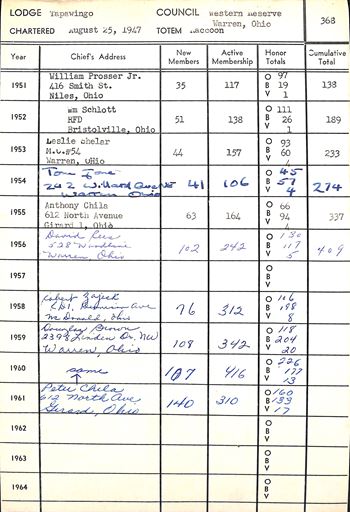 LODGE Tapawingo COUNCIL Western Reserve
Warren, Ohio
368
CHARTERED August 25, 1947 TOTEM Raccoon
Year Chief's Address New Members Active Membership Honor Totals Cumulative Total
William Prosser Jr. O 97
1951 416 Smith St. 35 117 B 19 138
Niles, Ohio V 1
Wm Schlott O 111
1952 RFD 51 138 B 26 189
Bristolville, Ohio V 1
Leslie O 93
1953 M.C.#54 44 157 B 60 233
Warren, Ohio V 4
Tom O 45
1954 202 Willard Ave 41 106 B 57 274
Warren Ohio V 4
Anthony Chila O 66
1955 612 North Avenue 63 164 B 94 337
Girard 1, Ohio V 4
David O 130
1956 528 Woodland 102 242 B 117 409
Warren, Ohio V 5
O
1957 B
V
Robert Zajack O 106
1958 Ave 76 312 B 198
McDonald, Ohio V 8
Douglas Brown O 118
1959 2398 Linden Dr. NW 108 342 B 204
Warren, Ohio V 20
O 226
1960 same 107 416 B 177
V 13
Peter Chila O 160
1961 612 North Ave 140 310 B 133
Girard, Ohio V 17
O
1962 B
V
O
1963 B
V
O
1964 B
V